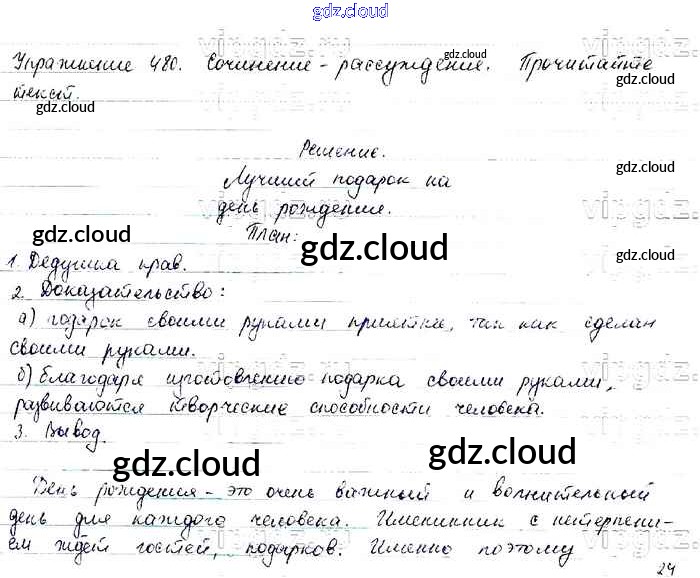 gdz.cloud
Упражнение 480. Сочинение - рассуждение. Прочитайте
текст.
Решение.
Лучший подарок на
день рождения.
План:
1. Дедушка прав.
2. Доказательство:
а) подарок своими руками приятнее, так как сделан
своими руками.
б) благодаря изготовлению подарка своими руками,
развиваются творческие способности человека.
3. Вывод.
День рождения - это очень важный и волнительный
день для каждого человека. Именинник с нетерпени-
ем ждёт гостей, подарков. Именно поэтому
24
gdz.cloud
gdz.cloud
gdz.cloud
gdz.cloud
gdz.cloud
gdz.cloud
gdz.cloud
gdz.cloud
gdz.cloud
gdz.cloud